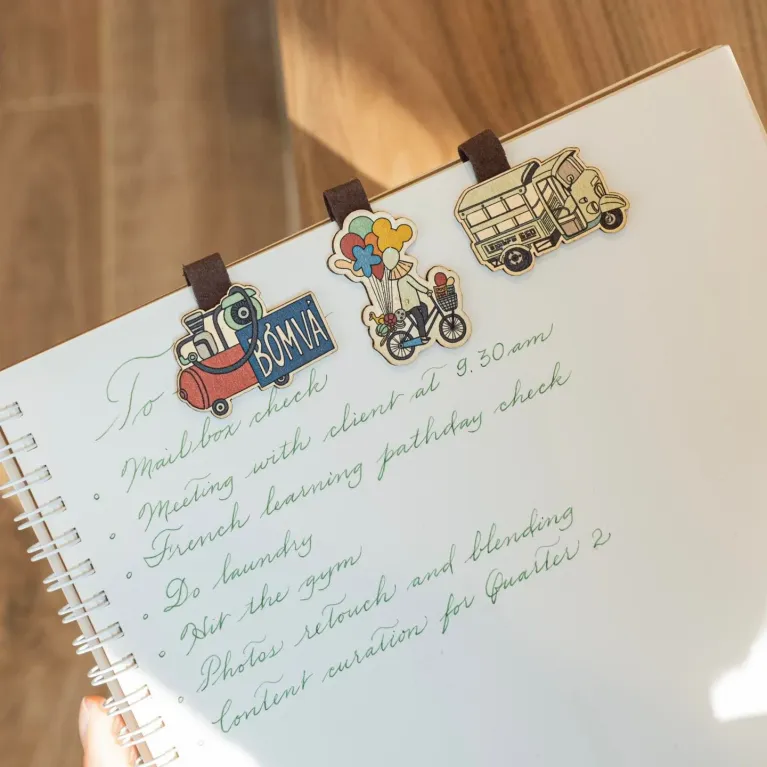 BƠM VÁ
To
Mail box check
Meeting with client at 9.30 am
French learning pathday check
Do laundry
Hit the gym
Photos retouch and blending
Content curation for Quarter 2